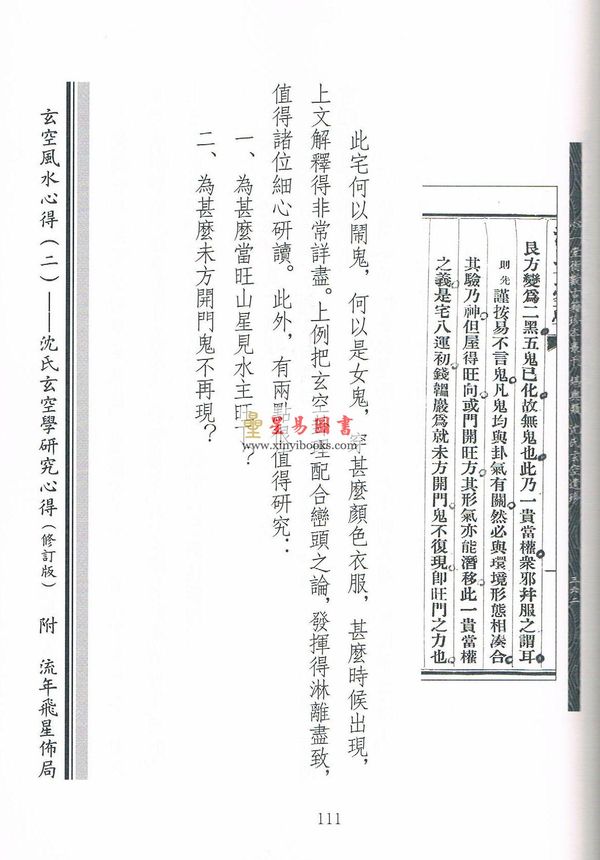 艮方變爲二黑五鬼已化故無鬼也此乃一貴當權衆邪幷服之謂耳
則先謹按易不言鬼凡鬼均與卦氣有關然必與環境形態相湊合
其驗乃神但屋得旺向或門開旺方其形氣亦能潛移此一貴當權
之義是宅八運初錢韞巖爲就未方開門鬼不復現卽旺門之力也
此宅何以鬧鬼，何以是女鬼，穿甚麼顏色衣服，甚麼時候出現，
上文解釋得非常詳盡。上例把玄空理配合巒頭之論，發揮得淋漓盡致，
值得諸位細心研讀。此外，有兩點很值得研究：
一、為甚麼當旺山星見水主旺丁？
二、為甚麼未方開門鬼不再現？
星易圖書
www.xinyibooks.com
玄空風水心得（二）——沈氏玄空學研究心得（修訂版） 附 流年飛星佈局
111